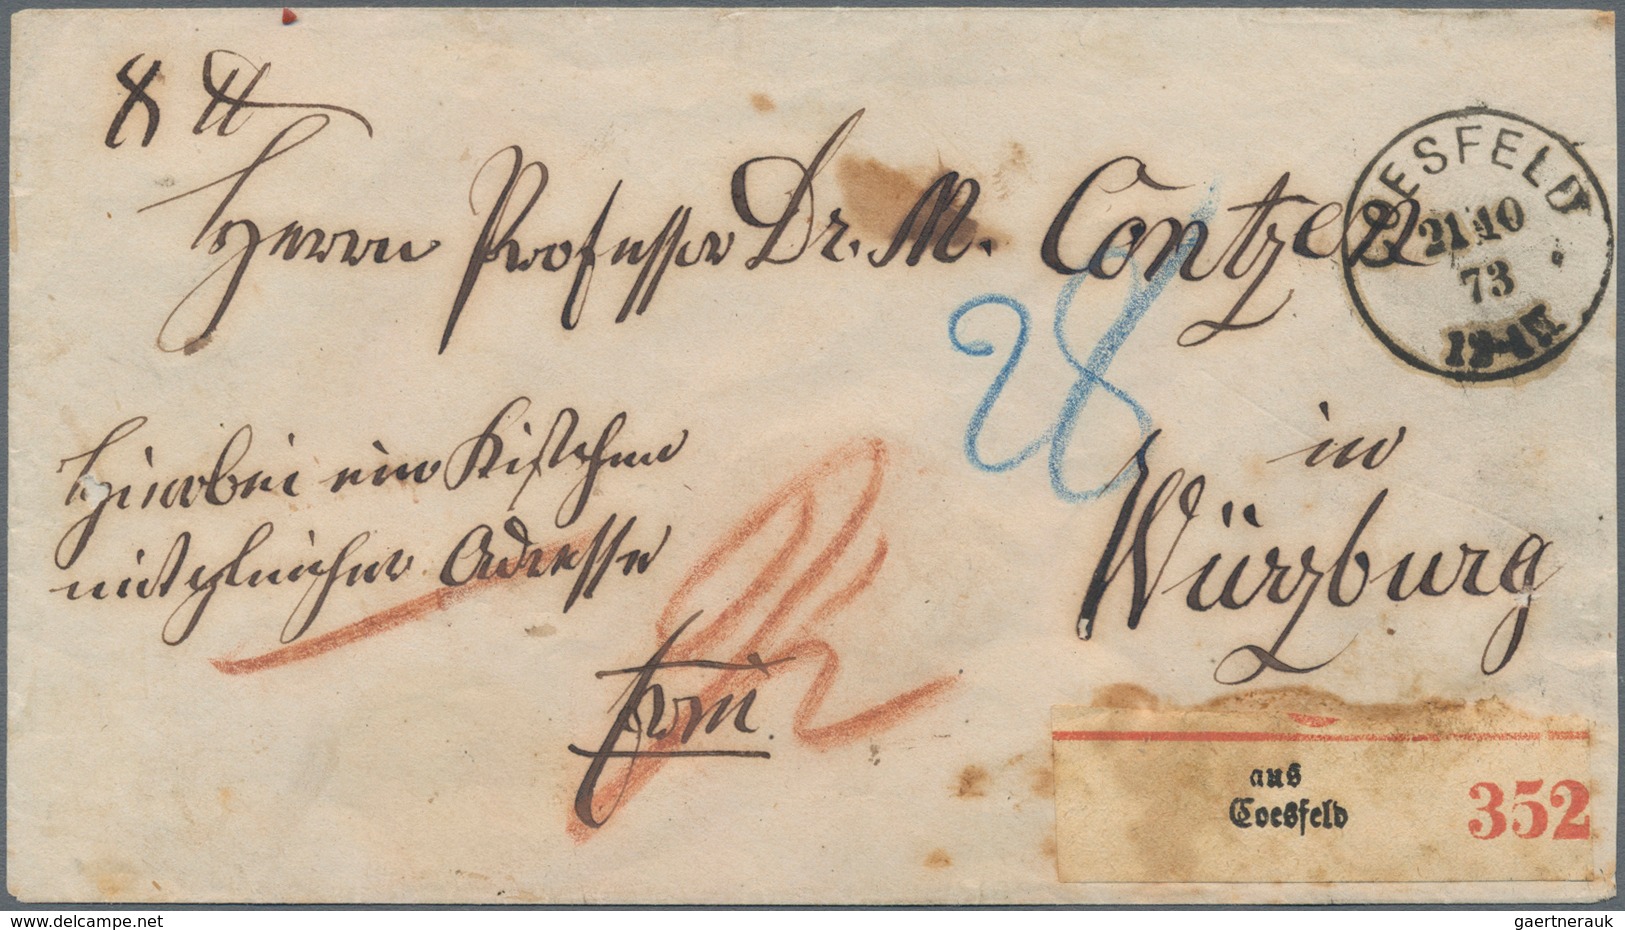 8 ℔
Herrn Professor Dr. M. Contzen
COESFELD
21 10
73
in
Würzburg
Hierbei ein Kistchen
mit gleicher Adresse
frei.
28
aus
Coesfeld
352
www.delcampe.net
gaertnerauk